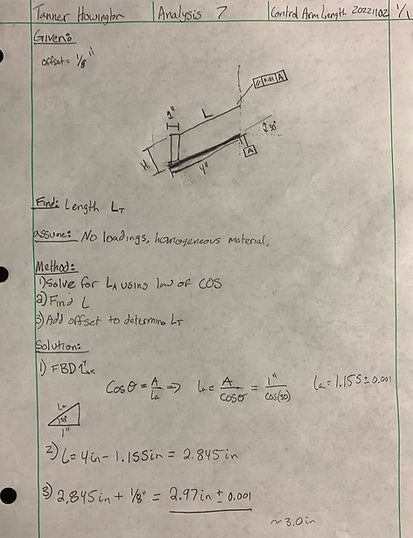 Tanner Howington Analysis 7 Control Arm Length 20221102 1/1
Given:
offset = 1/8"
1" L // 0.01 A
30°
H
4" A
Find: Length L_T
assume: No loadings, homogeneous material,
Method:
1) Solve for L_A using law of COS
2) Find L
3) Add offset to determine L_T
Solution:
1) FBD
Cosθ = A/La => La = A/cosθ = 1"/cos(30) La = 1.155 ± 0.001
La
30°
1"
2) L = 4in - 1.155in = 2.845 in
3) 2.845in + 1/8" = 2.97in ± 0.001
~3.0in